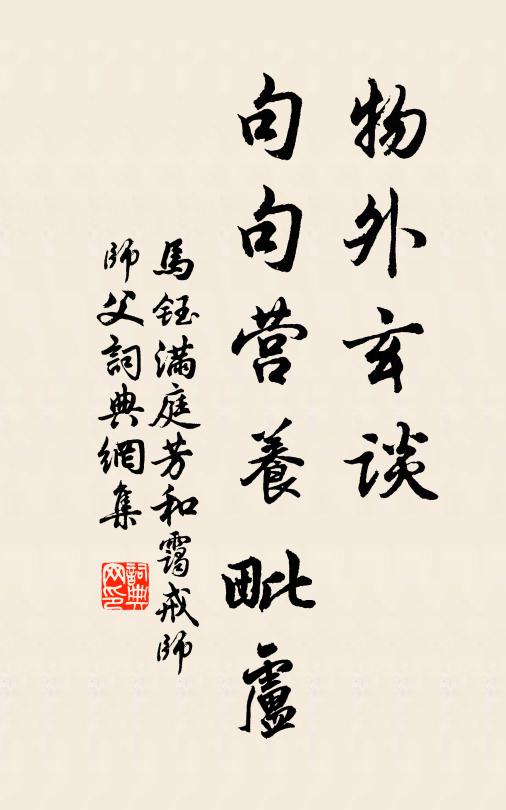 物外玄谈
句句营養毗盧
馬鈺满庭芳和靄戒師
師父詞典網集
詞典网印